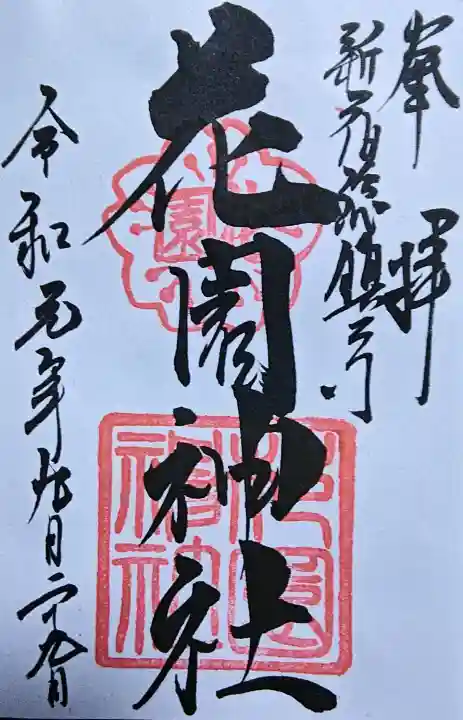 奉拝
新宿総鎮守
花園神社
令和元年九月二十九日
花園
花園神社